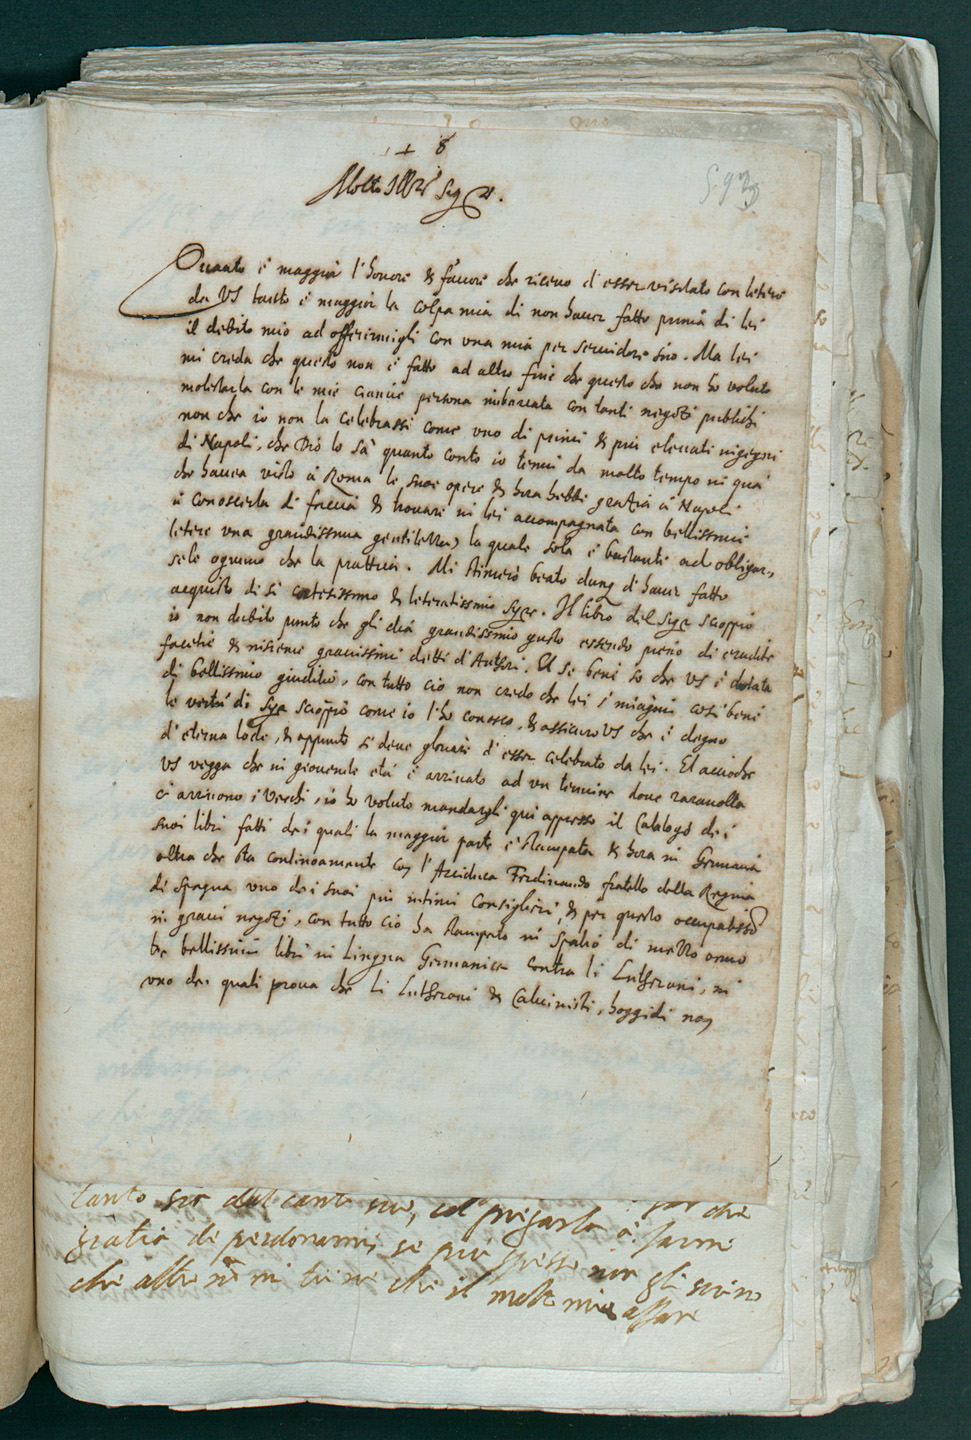 + 8
Molto Ill.re Sig.r
S. 93
Quanto è maggior l'honore & favore che ricevo d'esser visitato con lettere
da VS tanto è maggior la colpa mia di non haver fatto prima di lei
il debito mio ad offerirmigli con una mia per servidore suo. Ma lei
mi creda che questo non è fatto ad altro fine che questo che non ho voluto
molestarla con le mie ciancie persona imbarcata con tanti negotij publichi
non che io non la celebrassi come uno di primi & più elevati ingegni
di Napoli, che Dio lo sà quanto conto io tenni da molto tempo in quà
che haveva visto à Roma le sue opere & hora hebbi gratia à Napoli
à conoscerla di faccia & trovare in lei accompagnata con bellissime
lettere una grandissima gentilezza, la quale sola è bastante ad obligar,
sele ognuno che la prattica. Mi stimerò beato dunq d'haver fatto
acquisto di sì cortesissimo & letteratissimo Sigr. Il libro del Sigr Scioppio
io non dubito punto che gli dià grandissimo gusto essendo pieno di erudite
facetie & insieme gravissimi detti d'Authori. Et se bene so che VS è dotata
di bellissimo giuditio, con tutto ciò non credo che lei s'imagini così bene
le vertù di Sigr Scioppio come io l'ho conosco, & assicuro VS che è degno
d'eterna lode, & appunto si deve gloriare d'esser celebrato da lei. Et accioche
VS vegga che in giovenile età è arrivato ad un termine dove rare volte
ci arrivono i vecchi, io ho voluto mandargli qui appresso il Catalogo dei
suoi libri fatti dei quali la maggior parte è stampata & hora in Germania
oltra che sta continoamente con l'Arciduca Ferdinando fratello della Regina
di Spagna uno dei suoi più intimi Consiglieri, & per questo occupatiss.o
in gravi negotij, con tutto ciò ha stampato in spatio di mezzo anno
tre bellissimi libri in lingua Germanica contra li Lutherani, in
uno dei quali prova che li Lutherani & Calvinisti, hoggidi non
tanto per dal cant suo, et pregarla à farmi
gratia de perdonarmi se più spesso non gli scrivo
che altro non mi tiene che il molto mio affare